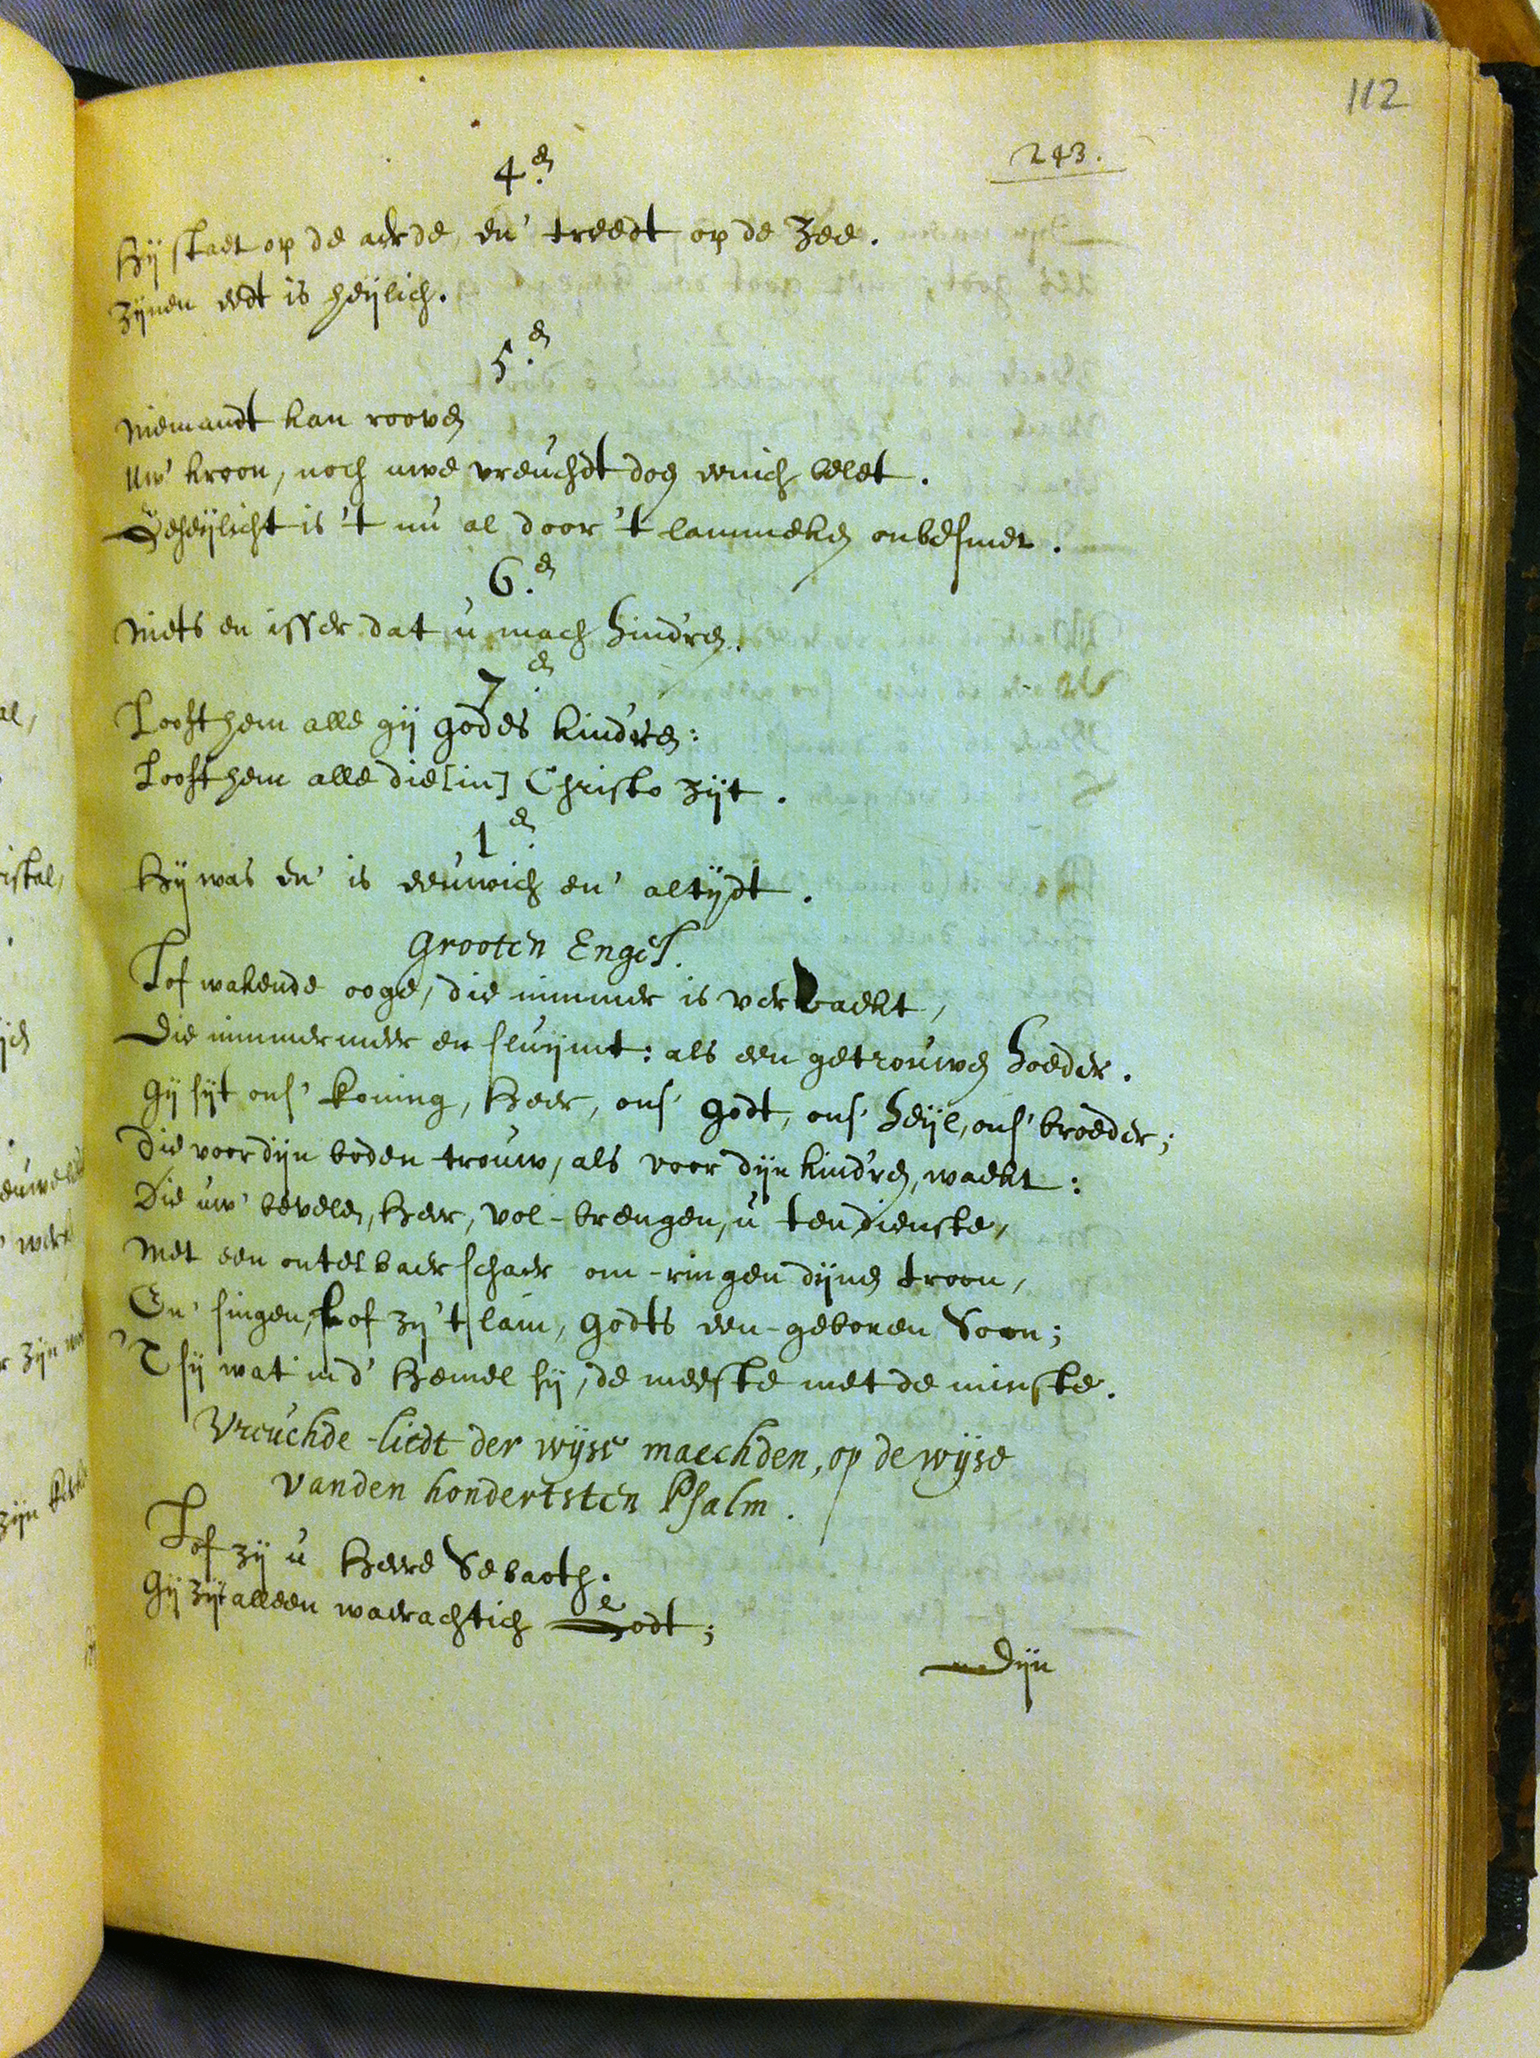 112
243.
4.e
Hij staet op de aerde, en' treedt op de Zee.
Zijnen eedt is heijlich.
5.e
Niemandt kan rooven
Uw' kroon, noch uwe vreuchdt doen eenich belet.
Geheijlicht is 't nu al door 't lammeken onbesmet.
6.e
Niets en isser dat u mach hind'ren.
7.e
Looft hem alle gij Godes kind'ren:
Looft hem alle die [in] Christo zijt.
1.e
Hij was en' is eeuwich en' altijdt.
Grooten Engel.
Lof wakende ooge, die nimmer is vervaekt,
Die nimmermeer en sluijmt: als een getrouwen hoeder.
Gij sijt ons' koning, Heer, ons' Godt, ons' heijl, ons' broeder;
Die voor dijn boden trouw, als voor dijn kind'ren, waekt:
Die uw' bevelen, Heer, vol-brengen, u ten dienste,
Met een ontelbaer schaer om-ringen dijnen troon,
En' singen, Lof zy 't lam, Godts een-geboren Soon;
'T sij wat in d' Hemel sij, de meeste met de minste.
Vreuchde-liedt der wijse maechden, op de wijse
vanden hondertsten Psalm.
Lof zij u Heere Sebaoth.
Gij zijt alleen waerachtich Godt;
Dijn